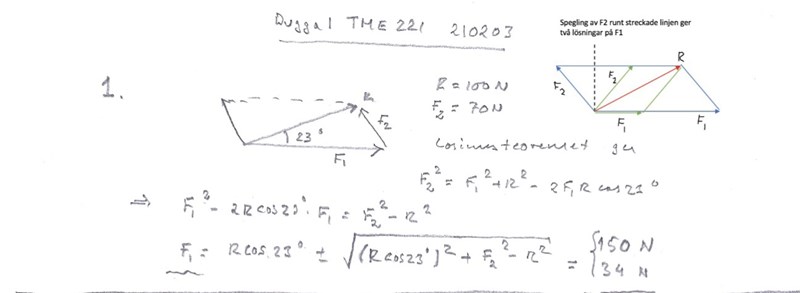 Dugga 1 TME 221 210203
Spegling av F2 runt streckade linjen ger
två lösningar på F1
1.
R
F₂
23°
F₁
R = 100 N
F₂ = 70 N
R
F₂
F₂
F₁
F₁
Cosinusteoremet ger
F₂² = F₁² + R² - 2F₁R cos 23°
⇒ F₁² - 2R cos 23° · F₁ = F₂² - R²
F₁ = R cos 23° ± √((R cos 23°)² + F₂² - R²) = { 150 N
34 N